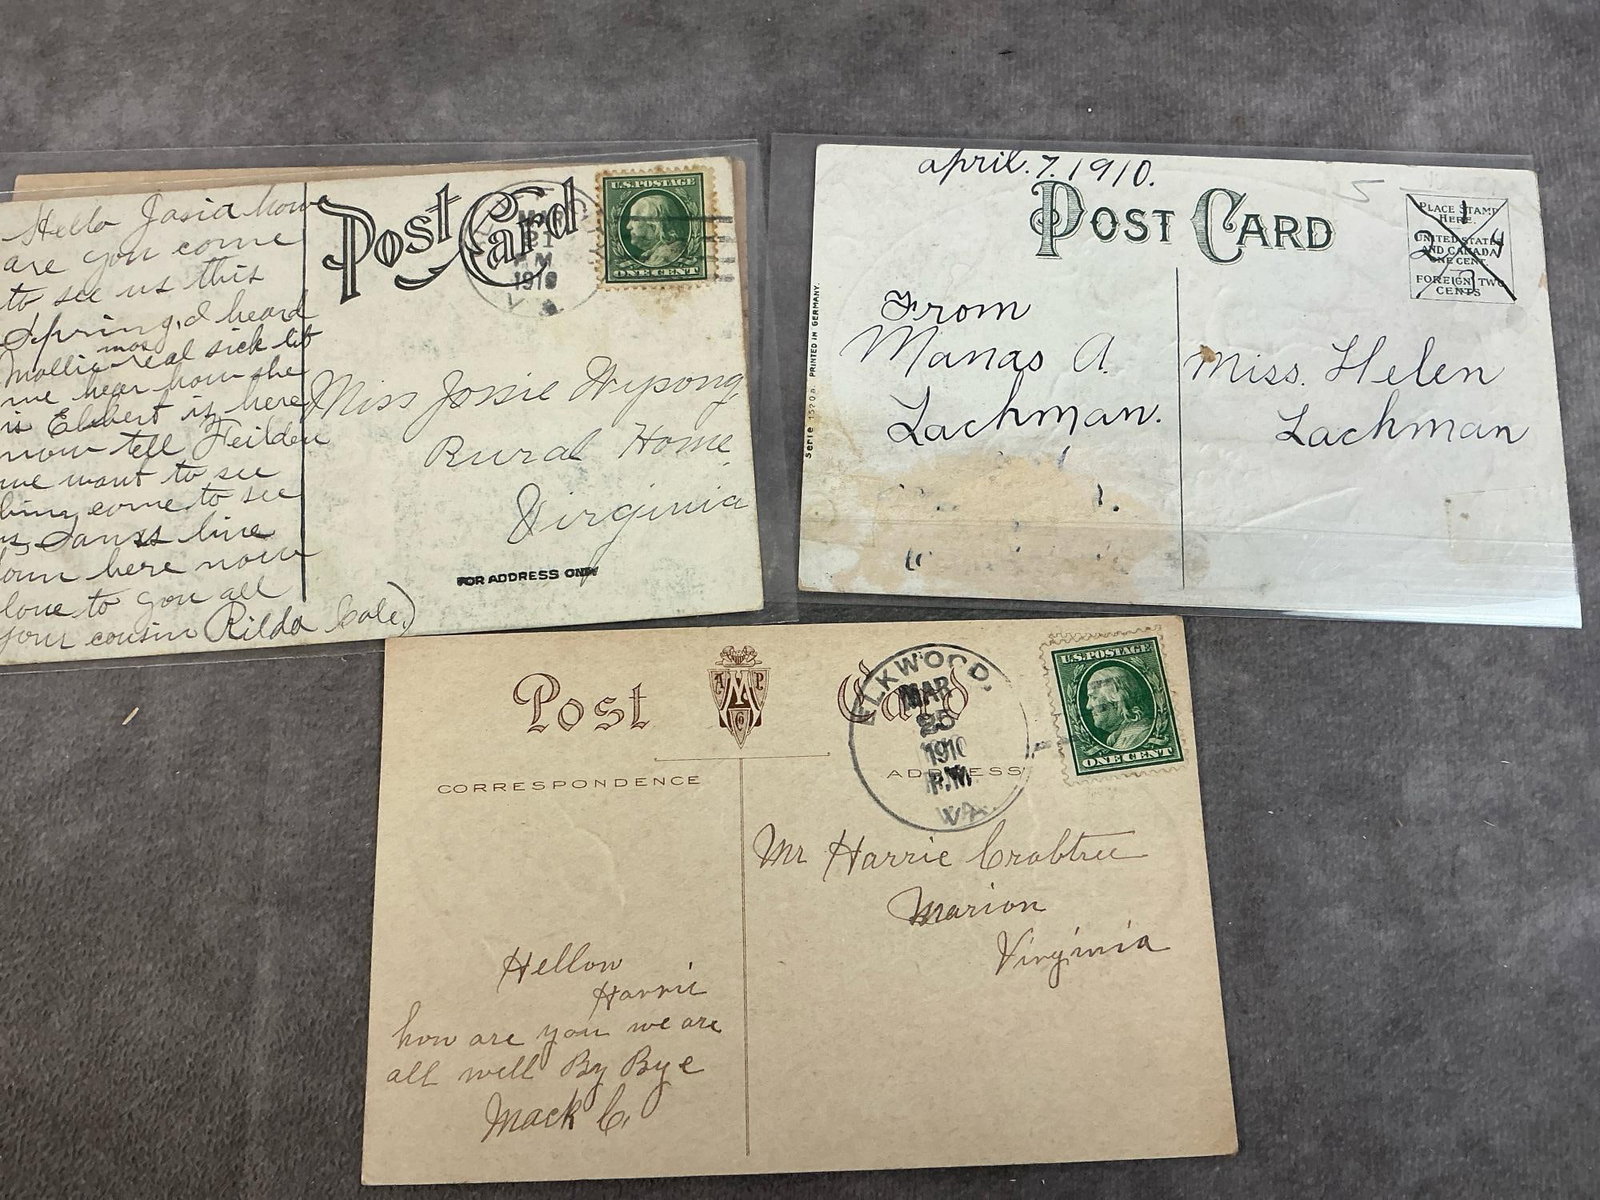 Hello Josia how
are you come
to see us this
Spring, I heard
Mollie was real sick let
me hear how she
is Elbert is here
now tell Feilden
we want to see
him come to see
us,
down here now
love to you all
your cousin Rilda Cole
Post Card
MAR
21
PM
1910
VA
U.S. POSTAGE
ONE CENT
Miss Josie Wysong
Rural Home
Virginia
FOR ADDRESS ONLY
april. 7. 1910.
POST CARD
PLACE STAMP
HERE.
UNITED STATES
AND CANADA
ONE CENT.
FOREIGN TWO
CENTS
1
2 4
3
Serie 1520 B. PRINTED IN GERMANY.
From
Manas A.
Lachman.
Miss. Helen
Lachman
Post Card
A M P
CO
CORRESPONDENCE
ADDRESS
ELKWOOD,
MAR
25
1910
P.M.
VA.
U.S. POSTAGE
ONE CENT
Mr Harrie Crabtree
Marion
Virginia
Hellow
Harrie
how are you we are
all well By Bye
Mack C.